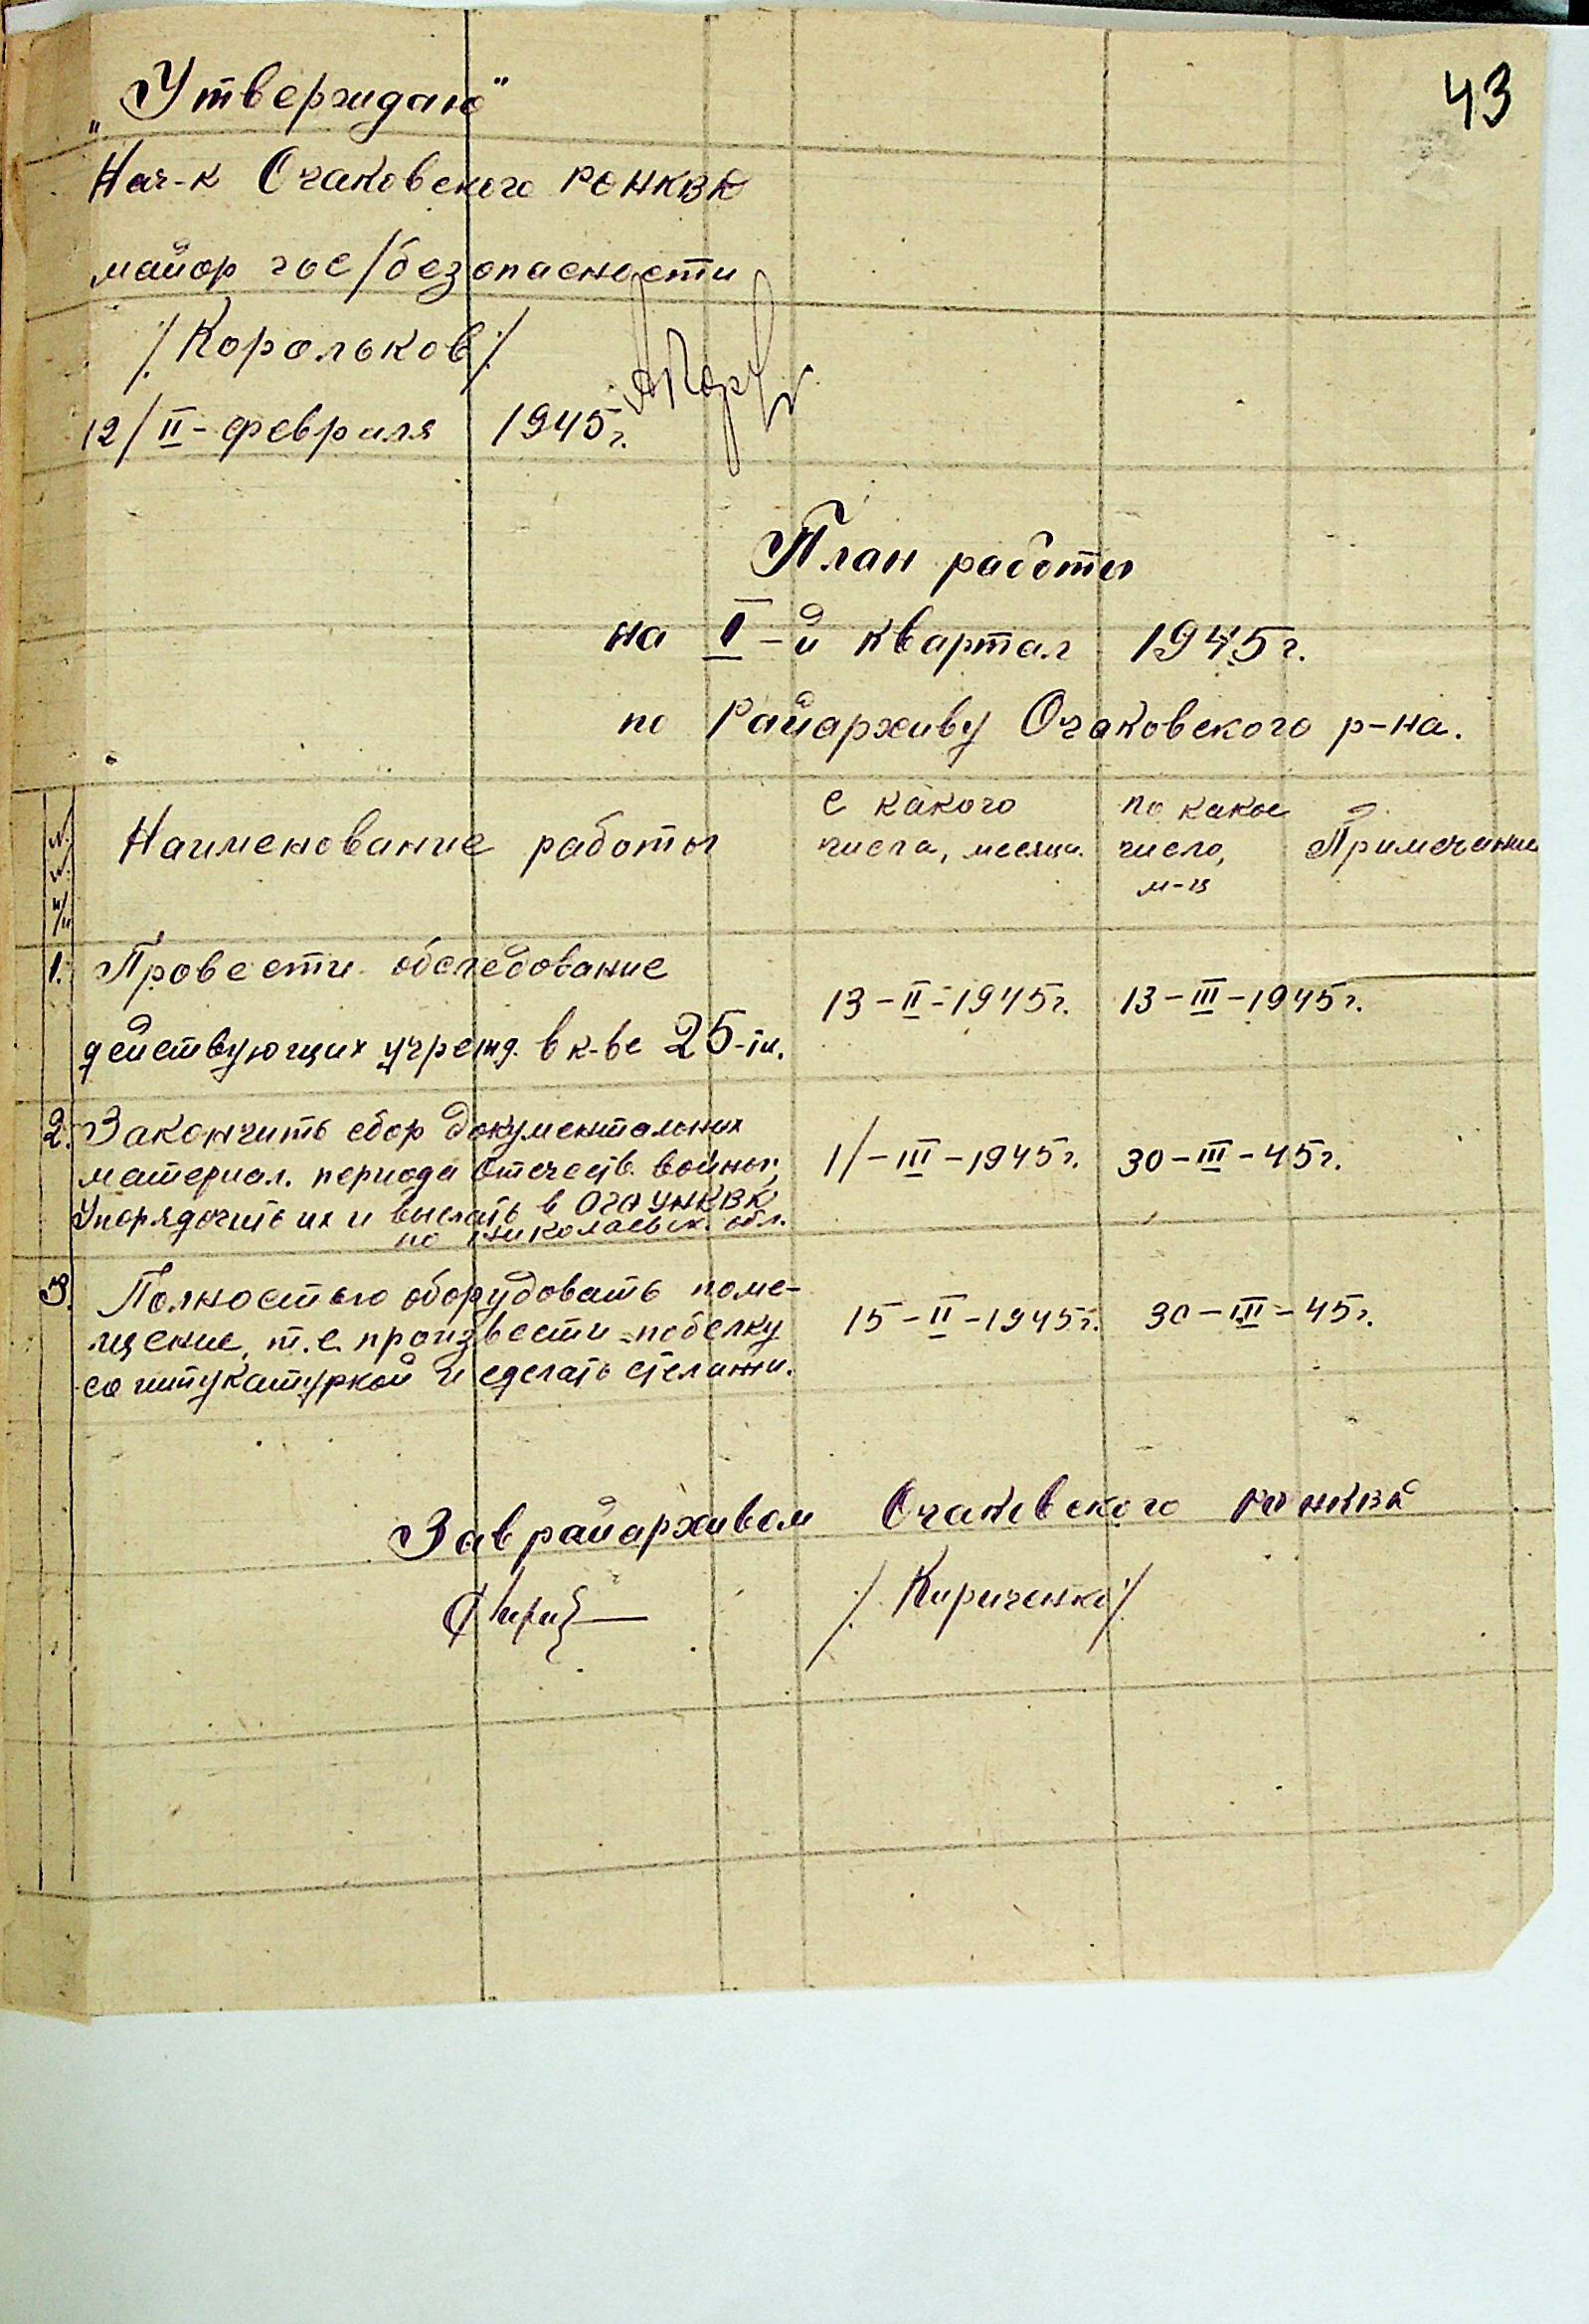 43
„Утверждаю"
Нач-к Очаковского РОНКВД
майор гос/безопасности
/Корольков/
12/II-февраля 1945г.
План работы
на I-й квартал 1945г.
по Райархиву Очаковского р-на.
№ № п/п Наименование работы с какого числа, месяца. по какое число, м-ц Примечание
1. Провести обследование
действующих учрежд. в к-ве 25-ти. 13-II-1945г. 13-III-1945г.
2. Закончить сбор документальных
материал. периода Отечеств. войны, 1/-III-1945г. 30-III-45г.
Упорядочить их и выслать в ОГА УНКВД
по Николаевск. обл.
3. Полностью оборудовать поме-
щение, т.е. произвести побелку 15-II-1945г. 30-III-45г.
со штукатуркой и сделать стелажи.
Зав райархивом Очаковского РОНКВД
/Кириченко/